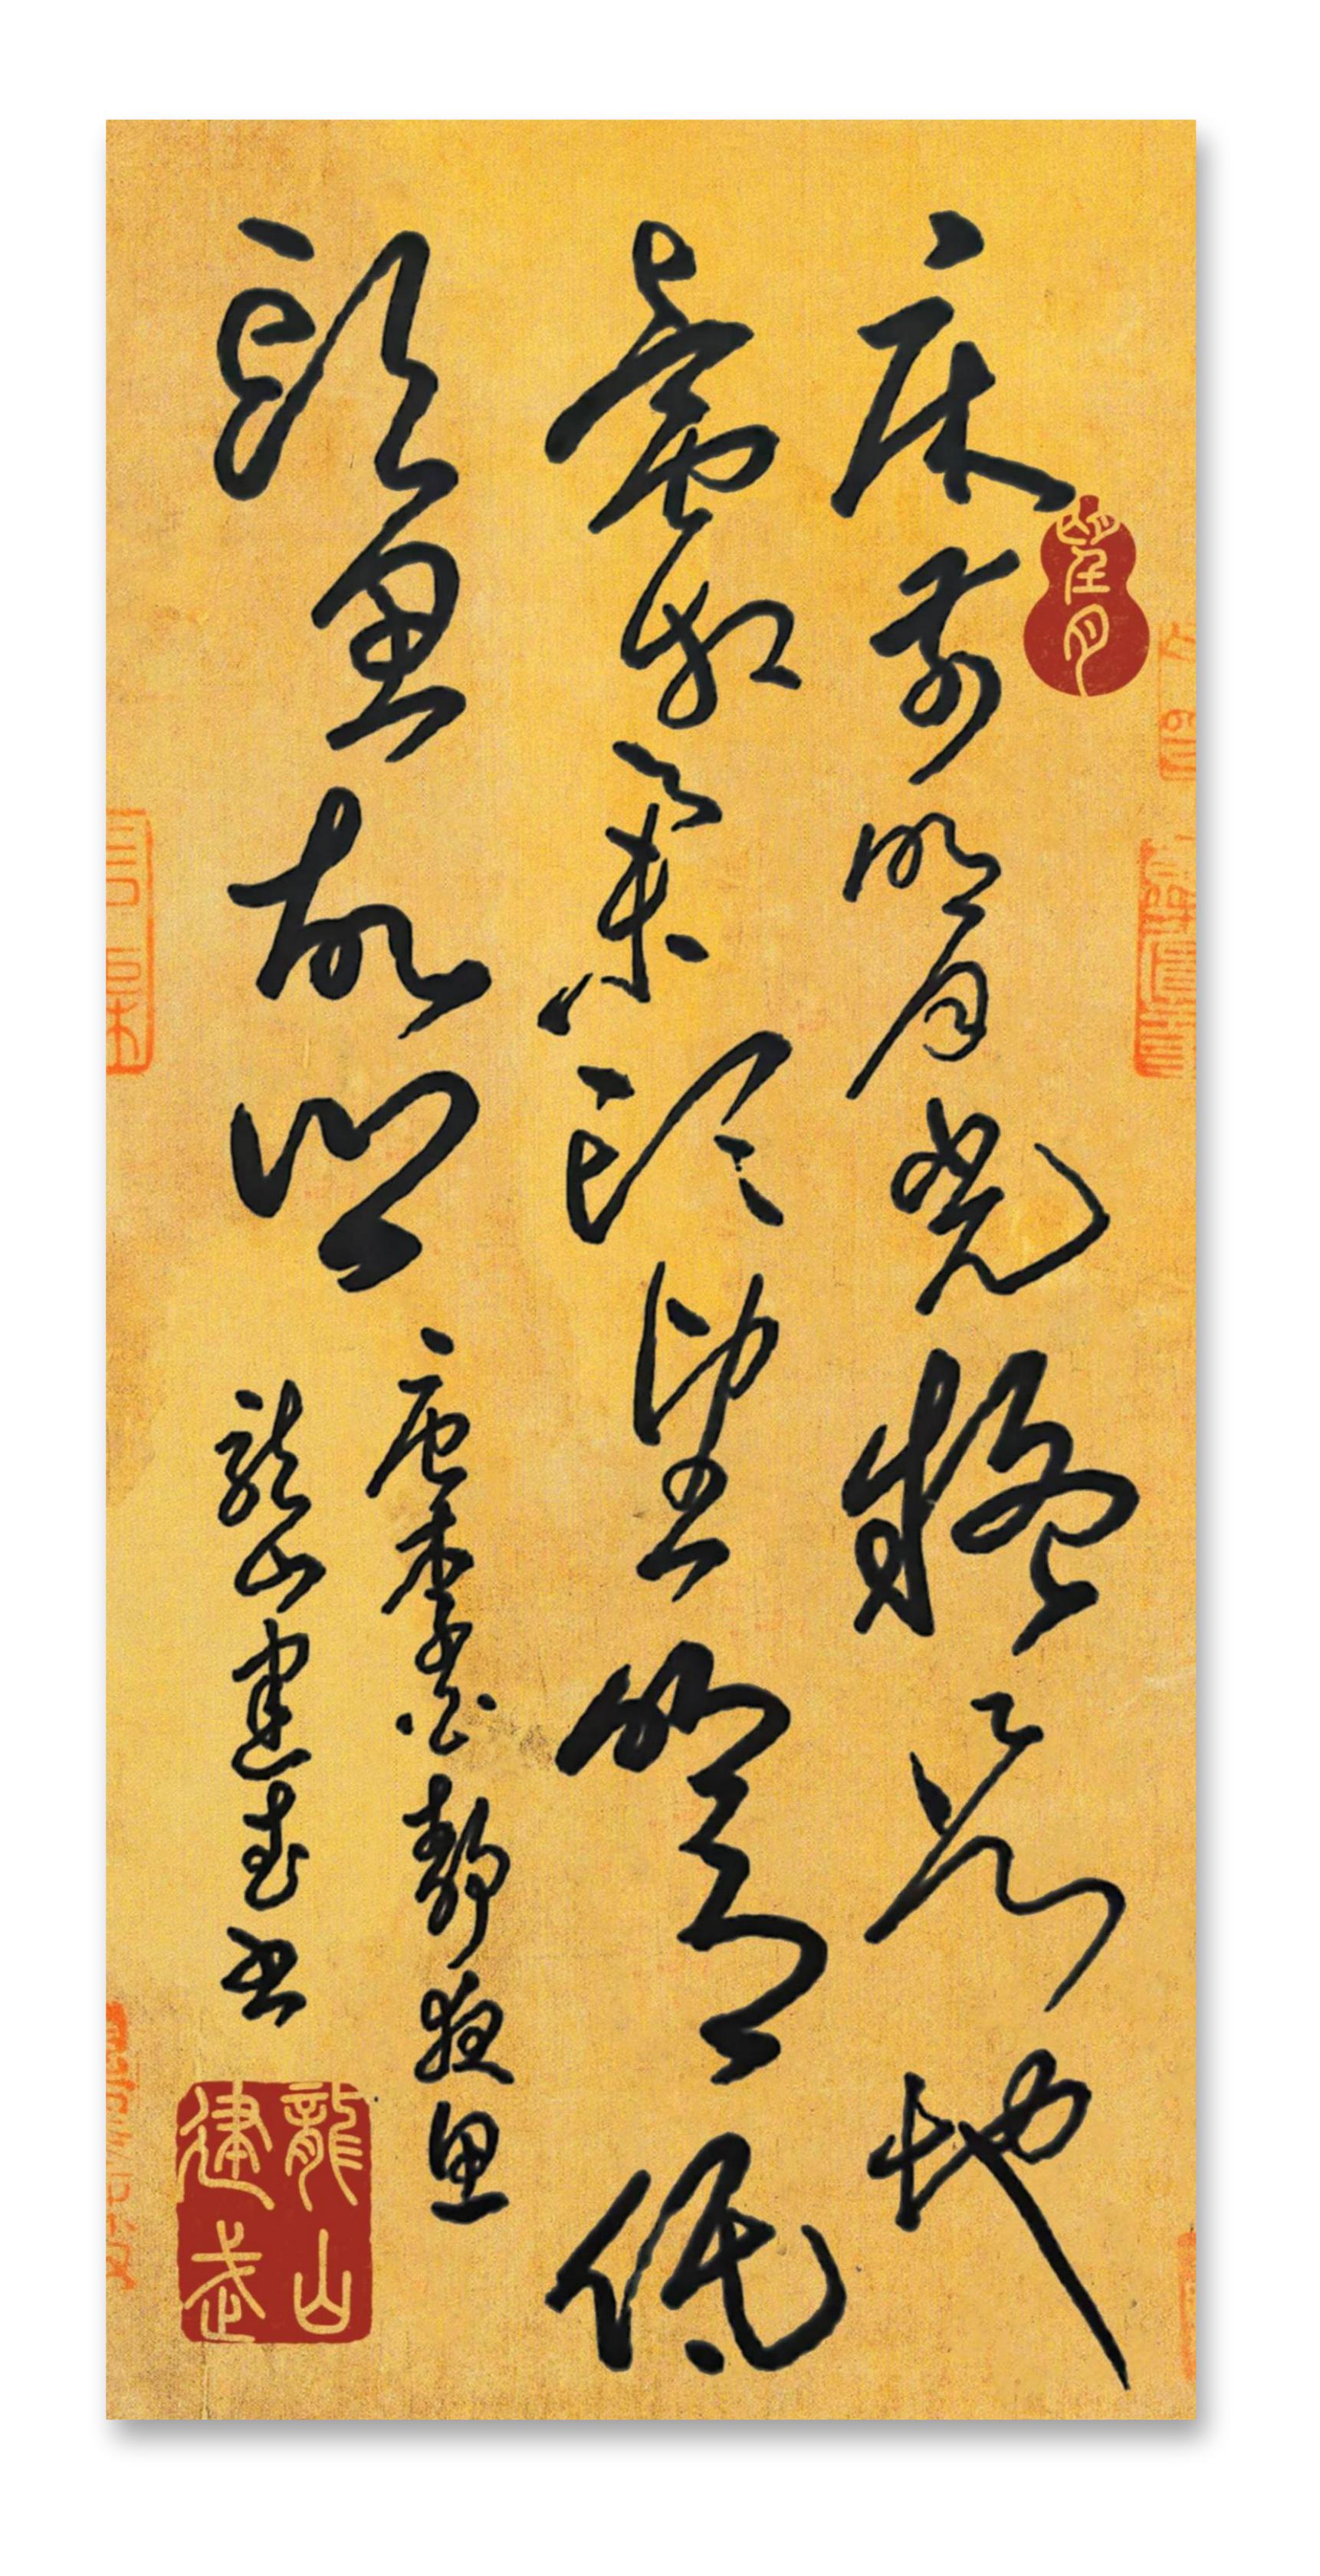 床前明月光疑是地
上霜舉頭望明月低
頭思故鄉
唐李白靜夜思
龍山建武書
望月
龍山
建武